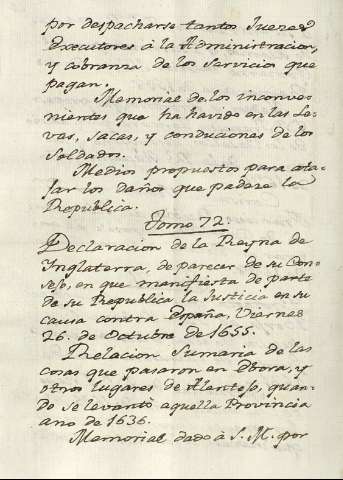 por despacharse tantos Juezes
Executores á la Administracion,
y cobranza de los servicios que
pagan.
Memorial de los inconve-
nientes que ha havido en las Le-
vas, sacas, y conduciones de los
Soldados.
Medios propuestos para ata-
jar los daños que padeze la
Republica.
Tomo 72.
Declaracion de la Reyna de
Inglaterra, de parecer de su Con-
sejo, en que manifiesta de parte
de su Republica la Justicia en su
causa contra España, Viernes
26. de Octubre de 1655.
Relacion Sumaria de las
cosas que pasaron en Ebora, y
otros lugares de Alentejo, quan-
do se levantó aquella Provincia
ano de 1636.
Memorial dado á S. M. por